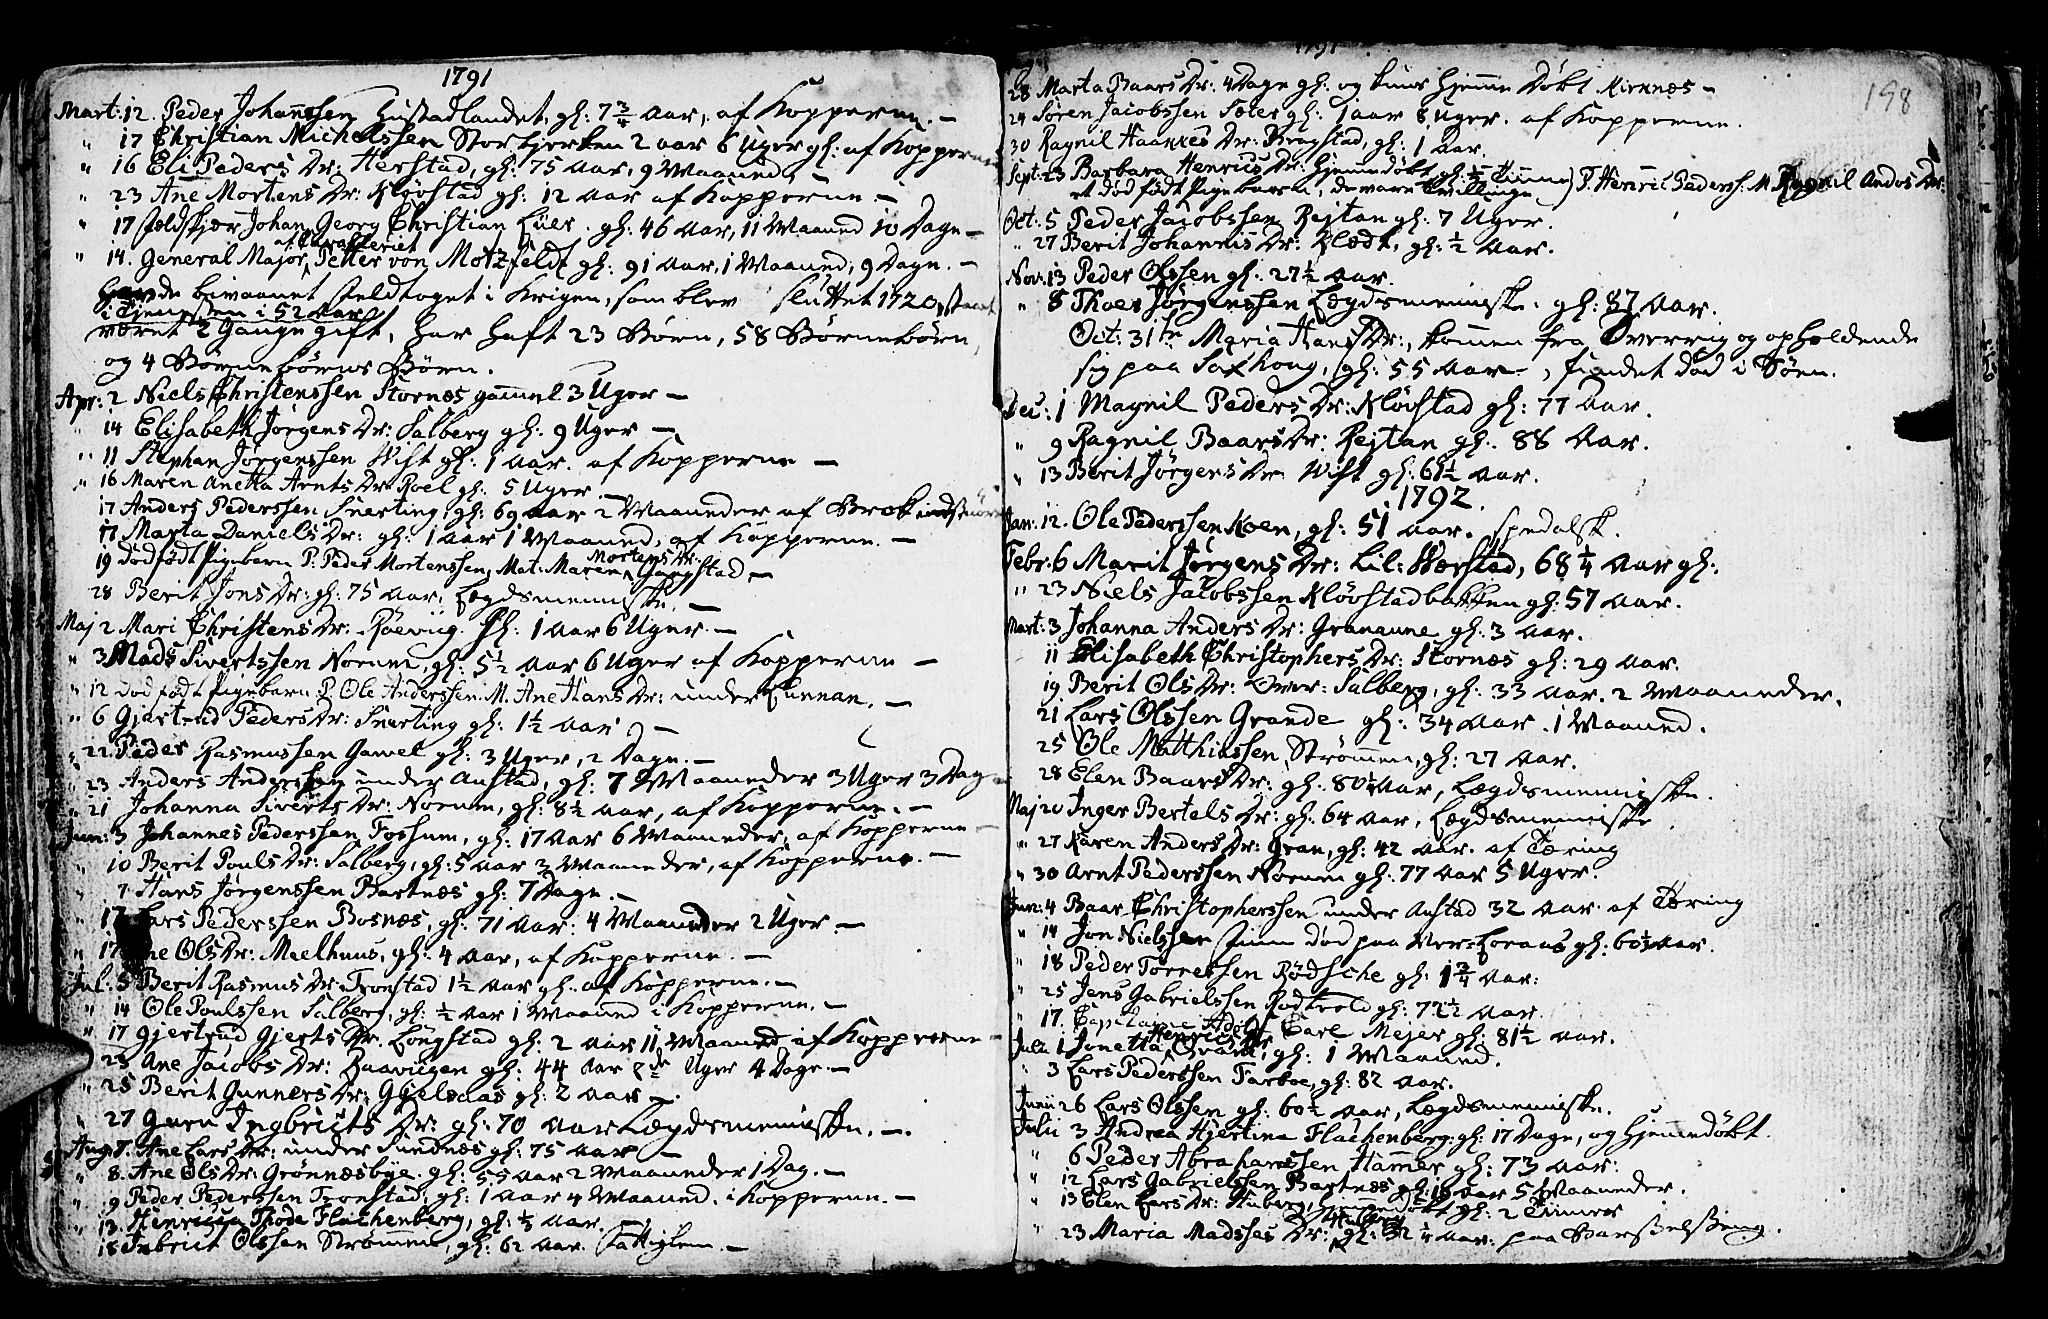 1791
Mart: 12. Peder Johannessen Hustadlandet, gl: 7 3/4 Aar, af Kopperne. —
" 17 Christian Michelssen Storkjerken 2 aar 6 Uger gl: af Kopperne
" 16 Eli Peders Dr: Herstad, gl: 75 Aar, 9 Maaned.
" 23 Ane Mortens Dr: Kløvstad gl: 12 aar af Kopperne —
" 17 Feldskjær Johan Georg Christian Lüer. gl: 46 Aar, 11 Maaned 10 Dage —
af Caracteriet
" 14. General Major, Petter von Motzfeldt gl: 91 Aar, 1 Maaned, 9 Dage. —
havde bivaanet Feldtoget i Krigen, som blev sluttet 1720, staaet
i Tjenesten i 52 Aar
været 2 Gange gift, har haft 23 Børn, 58 Børnebørn,
og 4 Børnebørns Børn.
Apr: 2 Niels Christenssen Stornæs gammel 3 Uger —
" 14 Elisabeth Jørgens Dr: Salberg gl: 9 Uger —
" 11 Stephan Jørgenssen Wist gl: 1 Aar. af Kopperne —
" 16 Maren Anetta Arnts Dr: Roel gl: 5 Uger —
17 Anders Pederssen Snerting, gl: 69 Aar 2 Maaneder af Brok
17 Marta Daniels Dr: gl: 1 Aar 1 Maaned, af Kopperne. —
Mortens Dr:
19 dødfødt Pigebarn P. Peder Mortenssen, Mat: Maren, Gangstad —
28 Berit Jons Dr: gl: 75 aar, Lægdsmenniske. —
Maj 2 Mari Christens Dr: Røeviig. gl: 1 Aar 6 Uger. —
" 3 Mads Sivertssen Norum, gl: 5 1/2 Aar 6 Uger af Kopperne —
" 12 dødfødt Pigebarn P. Ole Anderssen. M. Ane Hans Dr: under Lunnan. —
" 6 Gjertrud Peders Dr: Snerting gl: 1 1/2 Aar —
" 22 Peder Rasmussen Gamel gl: 3 Uger, 2 Dage. —
" 23 Anders Anderssen under Austad, gl: 7 Maaneder 3 Uger 3 Dage
" 21 Johanna Siverts Dr: Norum, gl: 8 1/2 aar, af Kopperne. —
Jun: 3 Johannes Pederssen Fossum, gl: 17 Aar 6 Maaneder, af Kopperne —
" 10 Berit Pouls Dr: Salberg, gl: 5 Aar 3 Maaneder, af Kopperne. —
" 7 Hans Jørgenssen Bartnæs gl: 7 Dage. —
" 17 Lars Pederssen Bosnæs, gl: 71 Aar. 4 Maaneder 2 Uger —
" 17 Ane Ols Dr: Meelhuus, gl: 4 Aar, af Kopperne. —
Jul: 5 Berit Rasmus Dr: Tronstad 1 1/2 Aar gl: af Kopperne. —
" 14 Ole Poulssen Salberg, gl: 1/2 Aar 1 Maaned i Kopperne. —
" 17 Gjertrud Gjerts Dr. Løngstad gl: 2 Aar 11 Maaned af Kopperne —
" 23 Ane Jacobs Dr: Baaviigen gl: 44 Aar Uger 4 Dage. —
" 25 Berit Gunners Dr: Gjelsaas gl: 2 Aar —
" 27 Guru Ingbricts Dr: gl: 70 Aar Lægdsmenniske. —
Aug: 7. Ane Lars Dr: under Sundnæs gl: 75 Aar —
" 8. Ane Ols Dr: Grønnæsbye. gl: 55 Aar 2 Maaneder 1 Dag. —
" 9 Peder Pederssen Tronstad, gl: 1 Aar 4 Maaned. i Kopperne. —
" 13. Henricca Thode Flachenberg, gl: 1/2 Aar. —
18 Inbrict Olssen Strømmen, gl: 62 Aar. Fattiglem. —
1791
198
28 Marta Baars Dr: 4 Dage gl: og kuns Hjemme Døbt Kirknæs —
24 Søren Jacobssen Sæter gl: 1 aar 8 Uger. af Kopperne.
30 Ragnil Haakkes Dr: Brogstad, gl: 1 Aar.
Sept: 23 Barbara Henrics Dr: hjemmedøbt, gl: 1/2 Time) P. Henric Peders: M. Ragnil Andos Dr:
et død født Pigebarn, de vare Tvillinge
Oct: 5 Peder Jacobssen Rejtan gl: 7 Uger.
" 27 Berit Johannis Dr: Klædt, gl: 1/2 Aar.
Nov: 13 Peder Olssen gl. 27 1/2 Aar.
" 8 Thoer Jørgenssen Lægdsmenniske. gl: 87 Aar.
Oct: 31te Maria Hans Dr:, kommen fra Sverrig og opholdende
sig paa Saxhoug, gl: 55 Aar, fundet død i Søen.
Dec: 1 Magnil Peders Dr: Kløvstad gl: 77 Aar.
" 9 Ragnil Baars Dr: Rejtan gl: 88 Aar.
" 13 Berit Jørgens Dr: Wist gl: 68 1/2 Aar.
1792.
Jan: 12. Ole Pederssen Moen, gl: 51 Aar. spedalsk.
Febr: 6 Marit Jørgens Dr: Lil: Wærstad, 68 1/4 Aar gl:.
" 23 Niels Jacobssen Kløvstadbakken gl: 57 Aar.
Mart: 3 Johanna Anders Dr: Granaune gl: 3 Aar.
11 Elisabeth Christophers Dr: Stornæs gl: 29 Aar.
19 Berit Ols Dr: Over: Salberg, gl: 33 Aar. 2 Maaneder.
21 Lars Olssen Grande gl: 34 Aar. 1 Maaned.
25 Ole Matthiassen, Strømmen, gl: 27 Aar.
28 Elen Baars Dr: gl: 80 1/4 Aar, Lægdsmenniske.
Maj 20 Inger Bertels Dr: gl: 64 Aar, Lægdsmenniske
" 27 Karen Anders Dr: Gran, gl: 42 Aar. af Tæring
" 30 Arnt Pederssen Norum gl: 77 Aar 5 Uger.
Jun: 4 Baar Christopherssen under Austad 32 Aar. af Tæring
" 14 Jon Nielssen funn død paa Ver-Loraas gl: 60 1/2 Aar.
" 18 Peder Torressen Rødsche gl: 1 3/4 Aar:
" 25 Jens Gabrielssen Rodtvold gl: 72 1/2 Aar.
" 17. Capitaine Adolf Carl Mejer gl: 81 1/2 Aar.
Henrics Dr
Julii 1 Jonetta, Qvam, gl: 1 Maaned.
" 3 Lars Pederssen Farboe, gl: 82 Aar.
Junii 26 Lars Olssen gl: 60 1/2 Aar, Lægdsmenniske.
Julii 3 Andrea Hjertina Flachenberg: gl: 17 Dage, og hjemmedøbt.
" 6 Peder Abrahamssen Hammer gl: 73 Aar:
" 12 Lars Gabrielssen Bartnæs gl: 18 Aar 5 Maaneder.
" 13 Elen Lars Dr: Huberg, hjemmedøbt gl: 2 Timer
" 23 Maria Madsses Dr: gl: 32 1/4 Aar: paa Barselseng.